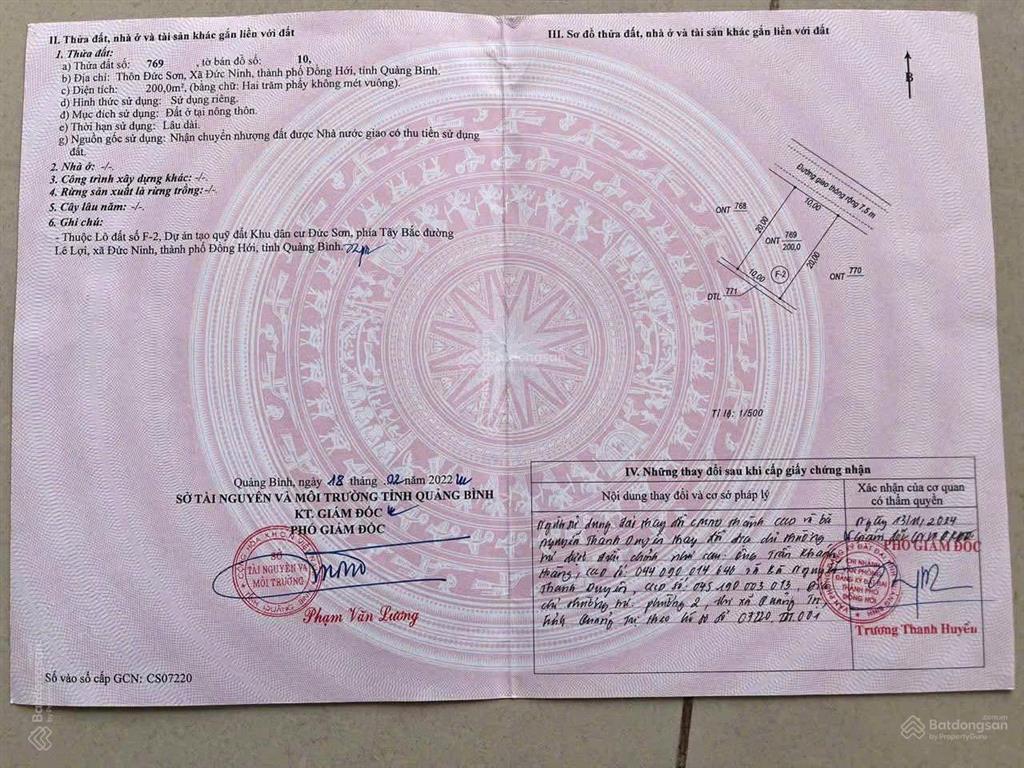 II. Thửa đất, nhà ở và tài sản khác gắn liền với đất
1. Thửa đất:
a) Thửa đất số: 769 , tờ bản đồ số: 10,
b) Địa chỉ: Thôn Đức Sơn, Xã Đức Ninh, thành phố Đồng Hới, tỉnh Quảng Bình.
c) Diện tích: 200,0m², (bằng chữ: Hai trăm phẩy không mét vuông).
d) Hình thức sử dụng: Sử dụng riêng.
đ) Mục đích sử dụng: Đất ở tại nông thôn.
e) Thời hạn sử dụng: Lâu dài.
g) Nguồn gốc sử dụng: Nhận chuyển nhượng đất được Nhà nước giao có thu tiền sử dụng
đất.
2. Nhà ở: -/-.
3. Công trình xây dựng khác: -/-.
4. Rừng sản xuất là rừng trồng: -/-.
5. Cây lâu năm: -/-.
6. Ghi chú:
- Thuộc Lô đất số F-2, Dự án tạo quỹ đất Khu dân cư Đức Sơn, phía Tây Bắc đường
Lê Lợi, xã Đức Ninh, thành phố Đồng Hới, tỉnh Quảng Bình.
Quảng Bình, ngày 18 tháng 02 năm 2022
SỞ TÀI NGUYÊN VÀ MÔI TRƯỜNG TỈNH QUẢNG BÌNH
KT. GIÁM ĐỐC
PHÓ GIÁM ĐỐC
SỞ
TÀI NGUYÊN VÀ
MÔI TRƯỜNG
Phạm Văn Lương
Số vào sổ cấp GCN: CS07220
III. Sơ đồ thửa đất, nhà ở và tài sản khác gắn liền với đất
B
Đường giao thông rộng 7,5 m
ONT 768
10,00
20,00
ONT 769
200,0
20,00
ONT 770
10,00
F-2
DTL 771
Tỉ lệ: 1/500
IV. Những thay đổi sau khi cấp giấy chứng nhận
Nội dung thay đổi và cơ sở pháp lý
Xác nhận của cơ quan
có thẩm quyền
Người sử dụng đất thay đổi CMND thành CCCD và bà
Nguyễn Thanh Duyên thay đổi địa chỉ thường
trú được đính chính như sau: ông Trần Khánh
Hoàng, CCCD số: 044090014640 và bà Nguyễn
Thanh Duyên, CCCD số: 045190003013, Địa
chỉ thường trú: phường 2, thị xã Quảng Trị,
tỉnh Quảng Trị theo hồ sơ số 07220.
Ngày 13/11/2024
PHÓ GIÁM ĐỐC
CHI NHÁNH
VĂN PHÒNG
ĐĂNG KÝ ĐẤT ĐAI
THÀNH PHỐ
ĐỒNG HỚI
Trương Thanh Huyền
Batdongsan
Batdongsan
by PropertyGuru
Batdongsan.com.vn
by PropertyGuru